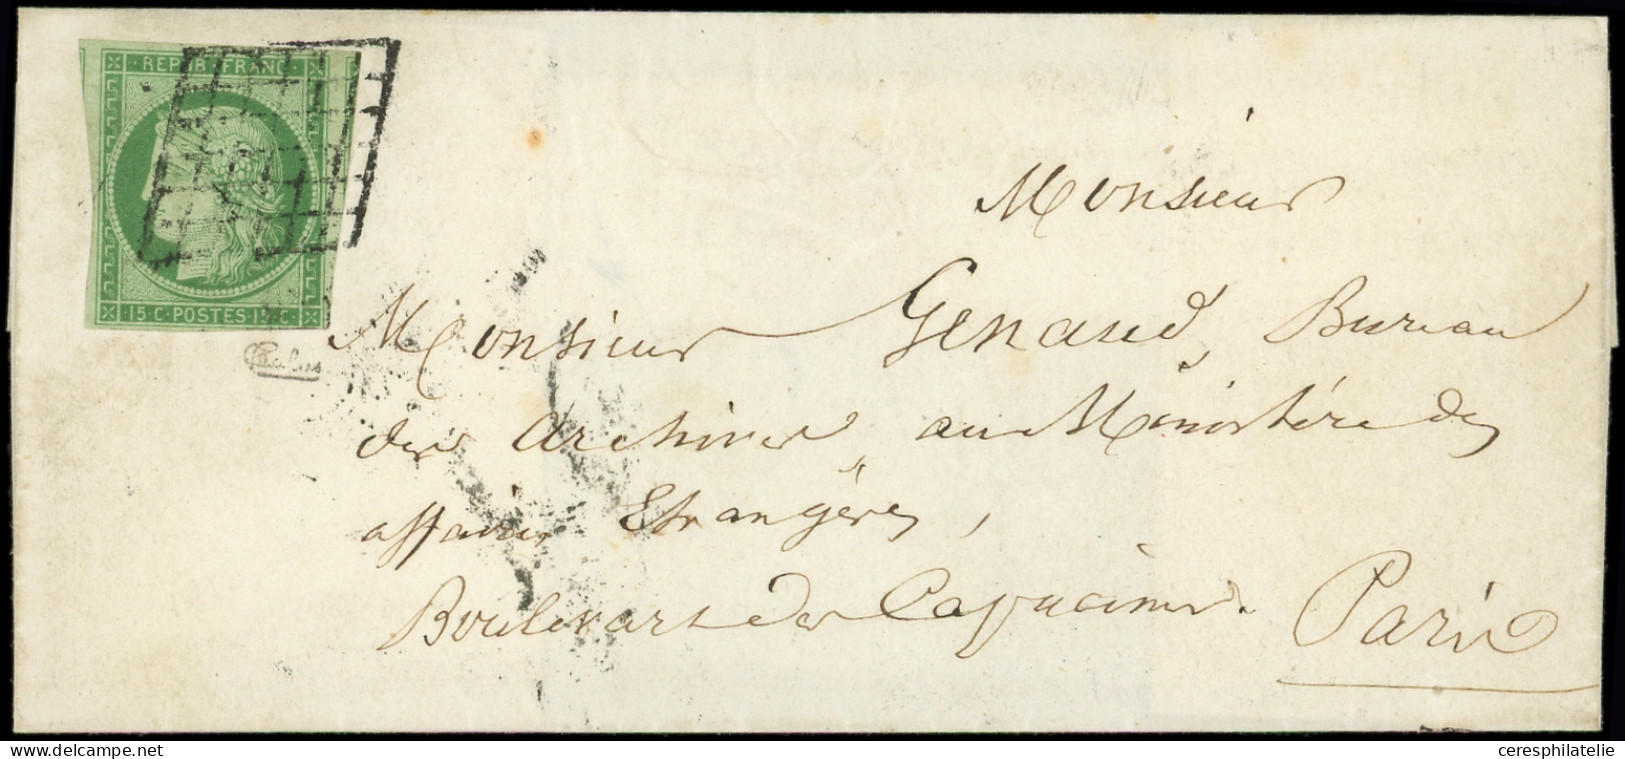 REPUB. FRANC.
15 · C · POSTES · 15 · C
Monsieur
Monsieur Genaud, Bureau
des Archives, au Ministère des
affaires Etrangères,
Boulevart des Capucines.
Paris
ceresphilatelie